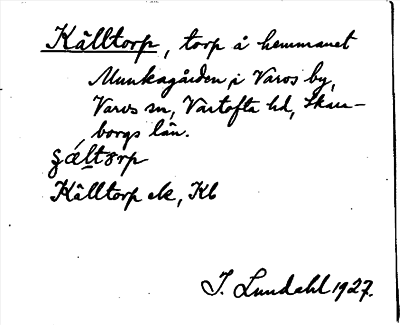 Källtorp, torp å hemmanet
Munkagården, i Varvs by,
Varvs sn, Vartofta hd, Skara-
borgs län.
Källtorp ek, Kb
I. Lundahl 1927.